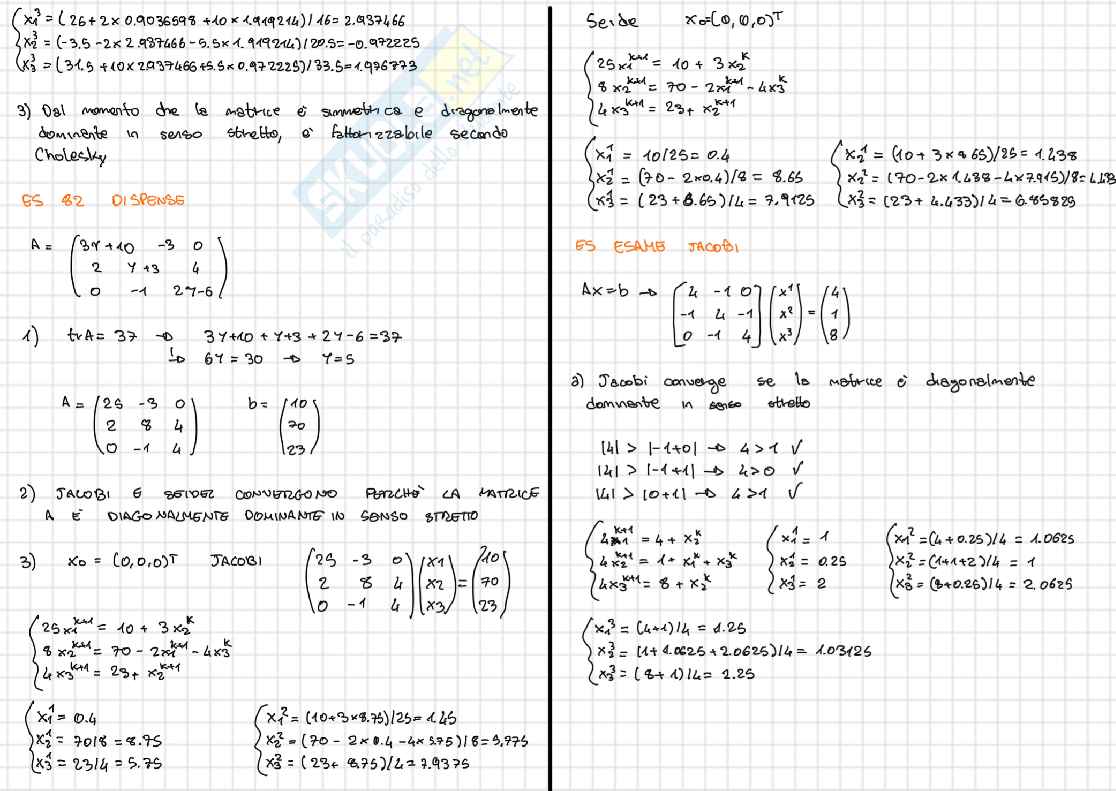 x₁³ = (26 + 2 × 0.9036598 + 10 × 1.919214) / 16 = 2.937466
x₂³ = (-3.5 - 2 × 2.937466 - 5.5 × 1.919214) / 20.5 = -0.972225
x₃³ = (31.5 + 10 × 2.937466 + 5.5 × 0.972225) / 33.5 = 1.976773
3) Dal momento che la matrice è simmetrica e diagonalmente
dominente in senso stretto, è fattorizzabile secondo
Cholesky
ES 82 DISPENSE
A = (3γ+10 -3 0
2 γ+3 4
0 -1 2γ-6)
1) trA = 37 → 3γ+10 + γ+3 + 2γ-6 = 37
↳ 6γ = 30 → γ=5
A = (25 -3 0 b = (10
2 8 4 70
0 -1 4) 23)
2) JACOBI E SEIDEL CONVERGONO PERCHÈ LA MATRICE
A È DIAGONALMENTE DOMINANTE IN SENSO STRETTO
3) x₀ = (0,0,0)ᵀ JACOBI (25 -3 0) (x1) = (10)
(2 8 4) (x2) (70)
(0 -1 4) (x3) (23)
25x₁ᵏ⁺¹ = 10 + 3x₂ᵏ
8x₂ᵏ⁺¹ = 70 - 2x₁ᵏ⁺¹ - 4x₃ᵏ
4x₃ᵏ⁺¹ = 23 + x₂ᵏ⁺¹
x₁¹ = 0.4
x₂¹ = 70/8 = 8.75
x₃¹ = 23/4 = 5.75
x₁² = (10+3×8.75)/25 = 1.45
x₂² = (70 - 2×0.4 - 4×5.75)/8 = 5.775
x₃² = (23 + 8.75)/4 = 7.9375
Seidel x₀=(0,0,0)ᵀ
25x₁ᵏ⁺¹ = 10 + 3x₂ᵏ
8x₂ᵏ⁺¹ = 70 - 2x₁ᵏ⁺¹ - 4x₃ᵏ
4x₃ᵏ⁺¹ = 23 + x₂ᵏ⁺¹
x₁¹ = 10/25 = 0.4
x₂¹ = (70 - 2×0.4)/8 = 8.65
x₃¹ = (23 + 8.65)/4 = 7.9125
x₂¹ = (10 + 3×8.65)/25 = 1.438
x₂² = (70 - 2×1.438 - 4×7.915)/8 = 4.433
x₃² = (23 + 4.433)/4 = 6.85825
ES ESAME JACOBI
Ax=b → [4 -1 0] (x¹) = (4)
[-1 4 -1] (x²) (1)
[0 -1 4] (x³) (8)
a) Jacobi converge se la matrice è diagonalmente
dominente in senso stretto
|4| > |-1+0| → 4>1 ✓
|4| > |-1+1| → 4>0 ✓
|4| > |0+1| → 4>1 ✓
4x₁ᵏ⁺¹ = 4 + x₂ᵏ
4x₂ᵏ⁺¹ = 1 + x₁ᵏ + x₃ᵏ
4x₃ᵏ⁺¹ = 8 + x₂ᵏ
x₁¹ = 1
x₂¹ = 0.25
x₃¹ = 2
x₁² = (4 + 0.25)/4 = 1.0625
x₂² = (1+1+2)/4 = 1
x₃² = (8+0.25)/4 = 2.0625
x₁³ = (4+1)/4 = 1.25
x₂³ = (1 + 1.0625 + 2.0625)/4 = 1.03125
x₃³ = (8+1)/4 = 2.25
SKUOLA.net
il paradiso dello